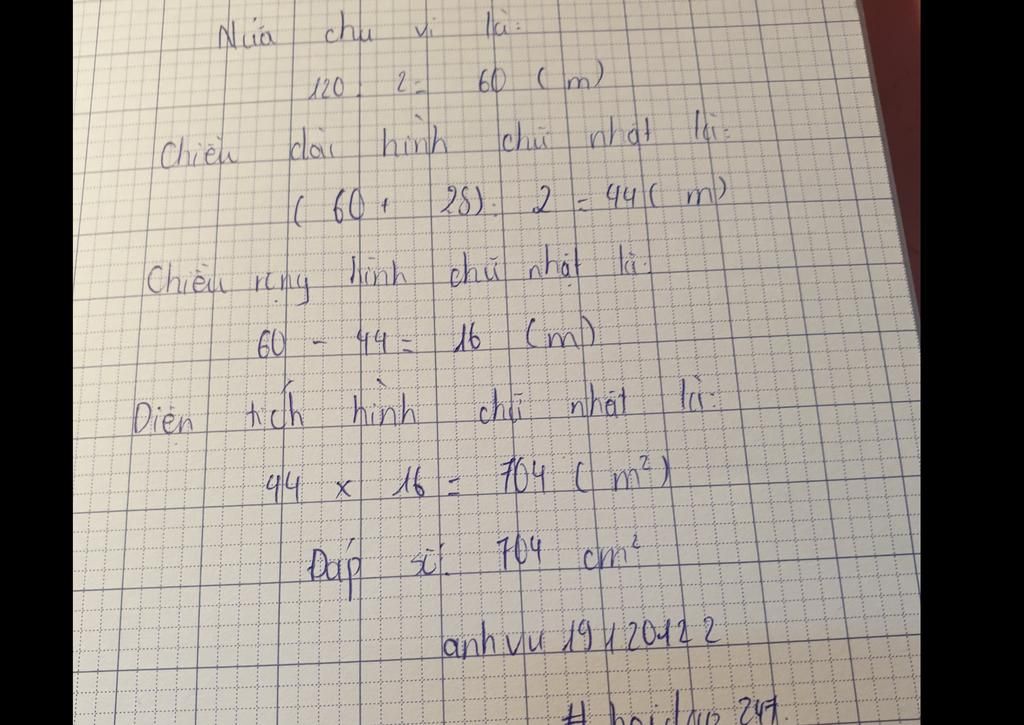 Nửa chu vi là:
120 : 2 = 60 ( m)
Chiều dài hình chữ nhật là:
( 60 + 28) : 2 = 44 ( m)
Chiều rộng hình chữ nhật là:
60 - 44 = 16 (m)
Diện tích hình chữ nhật là:
44 x 16 = 704 ( m²)
Đáp số: 704 cm²
anhvu 19
# hoidap 247.